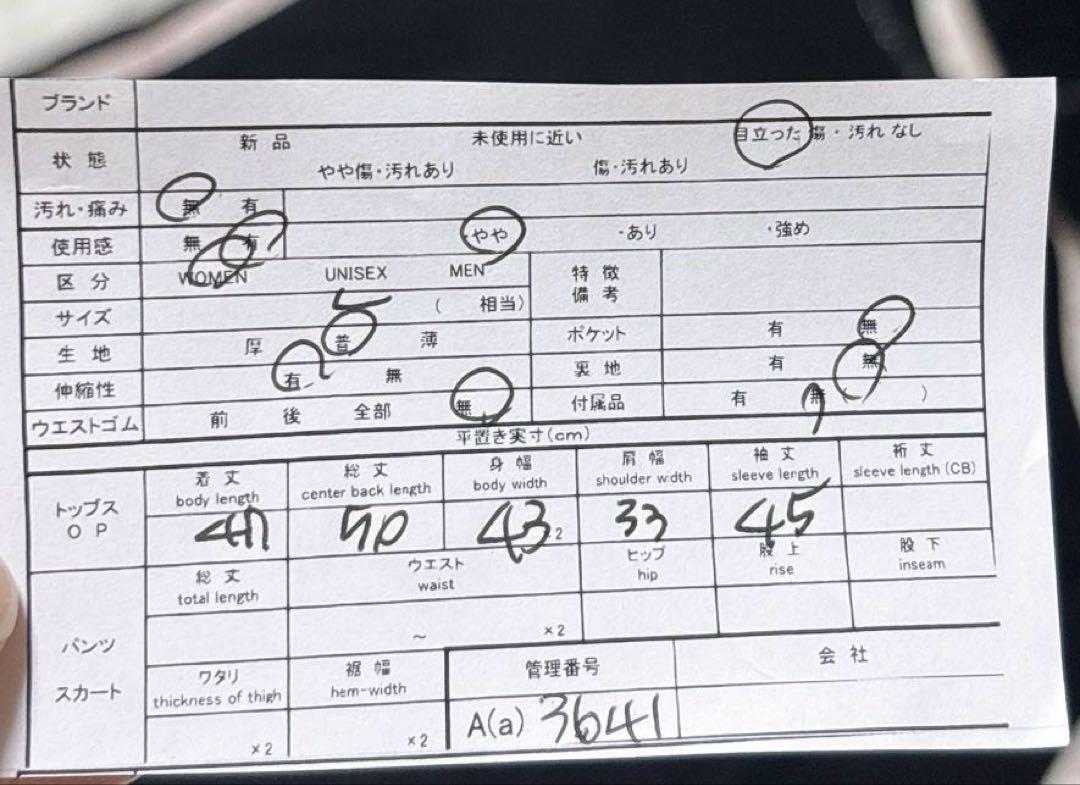 ブランド
状態 新品 未使用に近い 目立った傷・汚れなし
やや傷・汚れあり 傷・汚れあり
汚れ・痛み 無 有
使用感 無 有 ・やや ・あり ・強め
区分 WOMEN UNISEX MEN 特徴
備考
サイズ ( 相当)
生地 厚 普 薄 ポケット 有 無
伸縮性 有 無 裏地 有 無
ウエストゴム 前 後 全部 無 付属品 有 無 ( )
平置き実寸(cm)
トップス
OP
着丈 総丈 身幅 肩幅 袖丈 裄丈
body length center back length body width shoulder width sleeve length sleeve length (CB)
50 43 2 33 45
パンツ
スカート
総丈 ウエスト ヒップ 股上 股下
total length waist hip rise inseam
~ ×2
ワタリ 裾幅 管理番号 会社
thickness of thigh hem-width
×2 ×2 A(a) 3641